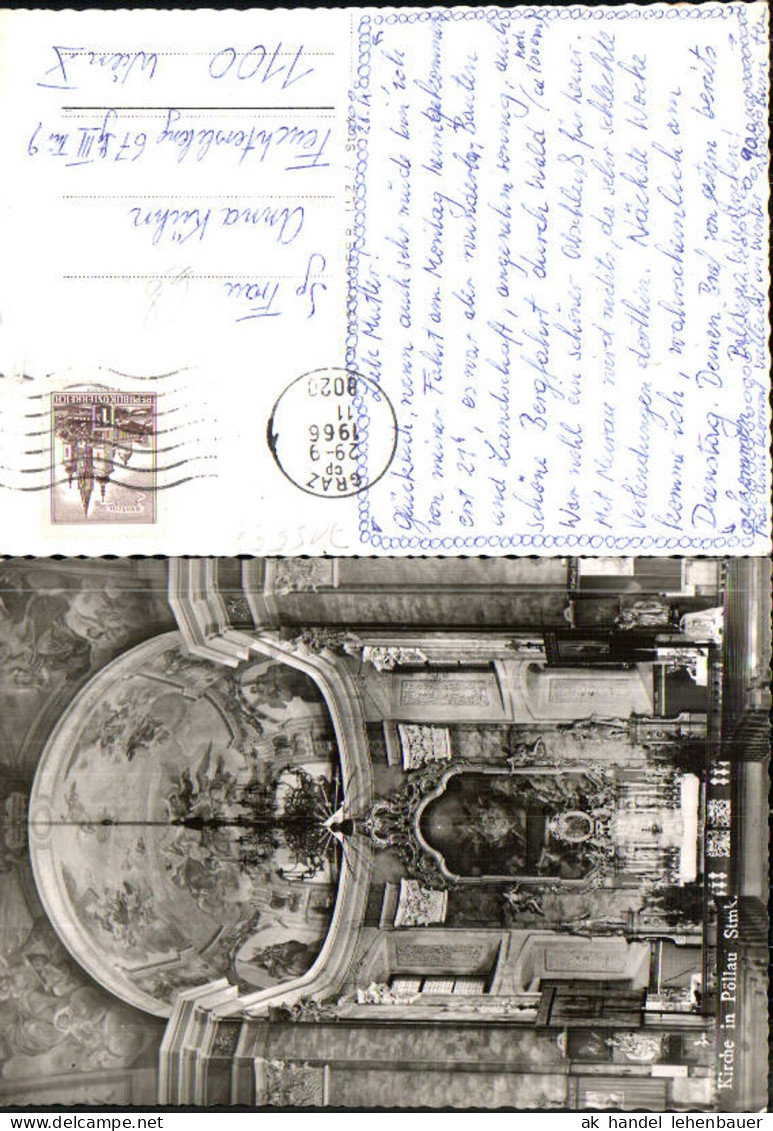 28. IX.
Liebe Mutter!
Glücklich, wenn auch sehr müde bin ich
von meiner Fahrt am Montag heimgekommen
erst 21h, es war aber wunderbar, Bauten
und Landschaft, angenehm sonnig, auch
schöne Bergfahrt durch Wald (ca 1000 m)
War wohl ein schöner Abschluß für heuer.
Mit Murau wird nichts, da sehr schlechte
Verbindungen dorthin. Nächste Woche
komme ich, wahrscheinlich am
Dienstag. Deinen Brief von gestern bereits
bekommen.
GRAZ
29-9
1966
11
8020
REPUBLIK ÖSTERREICH
1
Sg Frau
Anna Kühn
Feuchterslebeng 67 III 9
1100 Wien X
Kirche in Pöllau Stmk.
ak handel lehenbauer